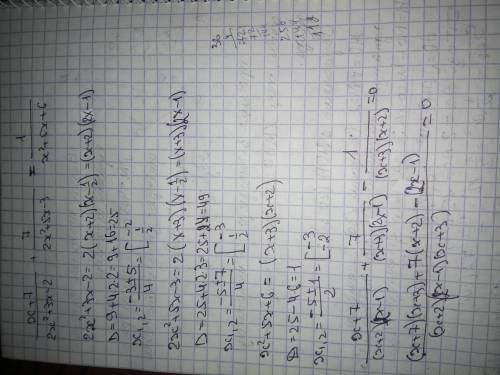 x+7 / 2x²+3x-2 + 7 / 2x²+5x-3 = 1 / x²+5x+6
2x²+3x-2=2(x+2)(x-1/2)=(x+2)(2x-1)
D=9+4·2·2=9+16=25
x1,2=(-3±5)/4=[-2 1/2
2x²+5x-3=2(x+3)(x-1/2)=(x+3)(2x-1)
D=25+4·2·3=25+24=49
x1,2=(-5±7)/4=[-3 1/2
x²+5x+6=(x+3)(x+2)
D=25-4·6=1
x1,2=(-5±1)/2=[-3 -2
x+7 / (x+2)(2x-1) + 7 / (x+3)(2x-1) - 1 / (x+3)(x+2) =0
(x+7)(x+3)+7(x+2)-(2x-1) / (x+2)(2x-1)(x+3) =0